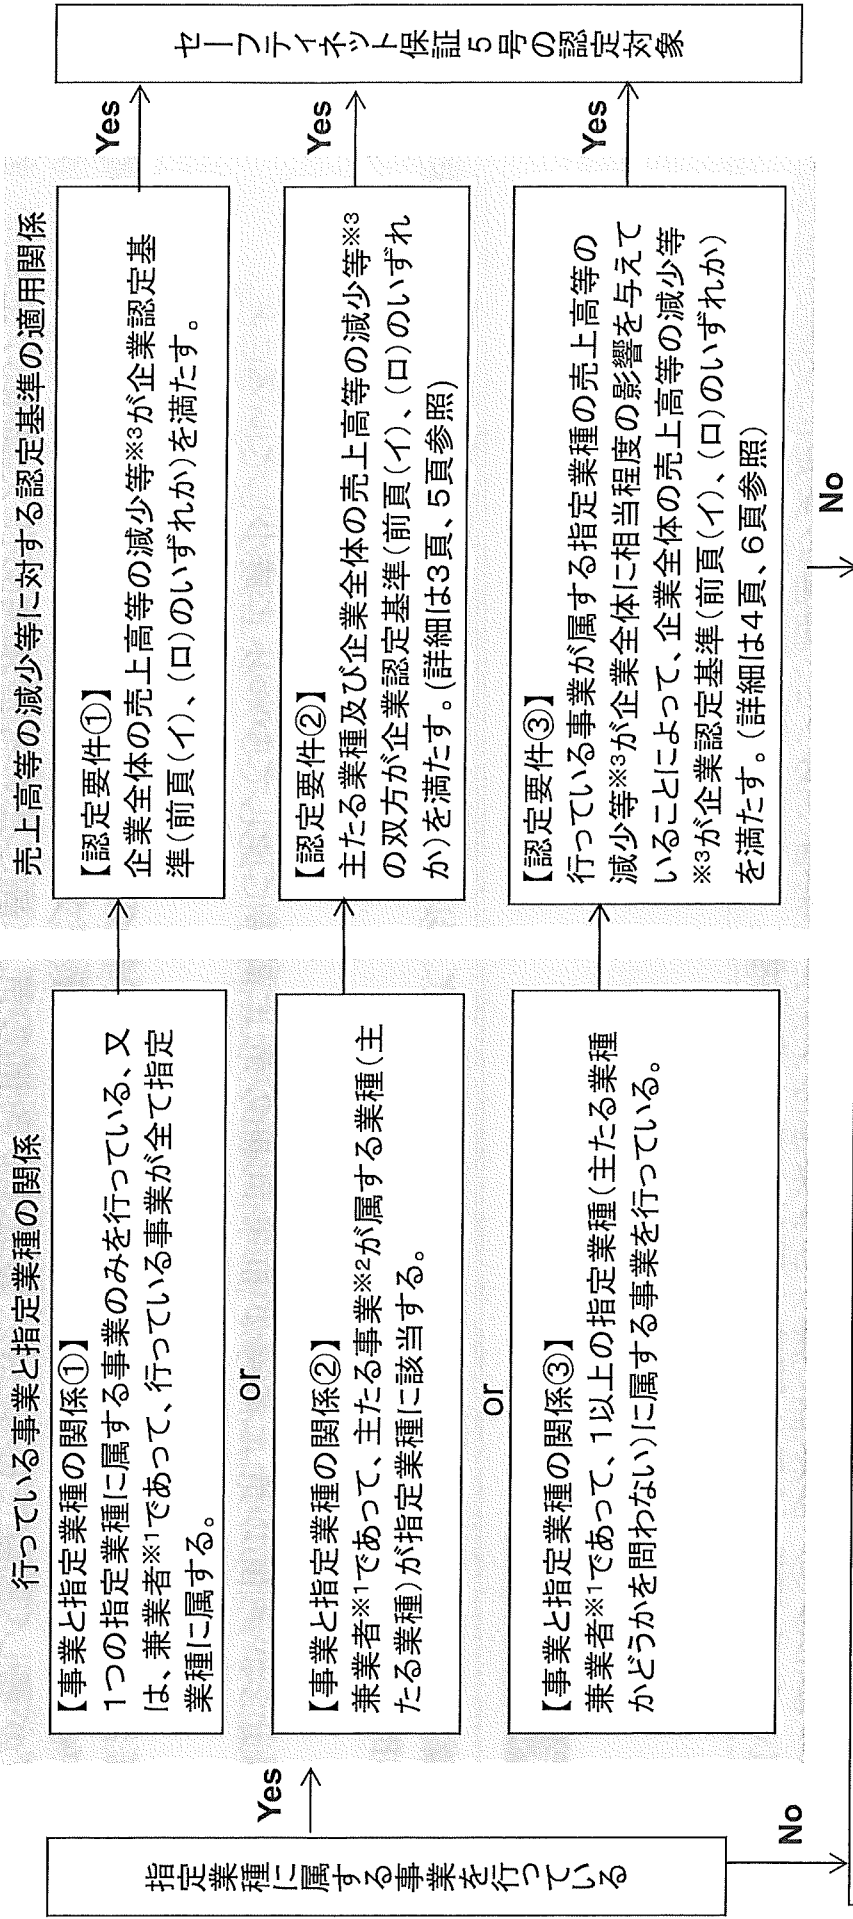 指定業種に属する事業を行っている
Yes
No
行っている事業と指定業種の関係
【事業と指定業種の関係①】
1つの指定業種に属する事業のみを行っている、又
は、兼業者※1であって、行っている事業が全て指定
業種に属する。
or
【事業と指定業種の関係②】
兼業者※1であって、主たる事業※2が属する業種(主
たる業種)が指定業種に該当する。
or
【事業と指定業種の関係③】
兼業者※1であって、1以上の指定業種(主たる業種
かどうかを問わない)に属する事業を行っている。
売上高等の減少等に対する認定基準の適用関係
【認定要件①】
企業全体の売上高等の減少等※3が企業認定基
準(前頁(イ)、(ロ)のいずれか)を満たす。
【認定要件②】
主たる業種及び企業全体の売上高等の減少等※3
の双方が企業認定基準(前頁(イ)、(ロ)のいずれ
か)を満たす。(詳細は3頁、5頁参照)
【認定要件③】
行っている事業が属する指定業種の売上高等の
減少等※3が企業全体に相当程度の影響を与えて
いることによって、企業全体の売上高等の減少等
※3が企業認定基準(前頁(イ)、(ロ)のいずれか)
を満たす。(詳細は4頁、6頁参照)
Yes
Yes
Yes
No
セーフティネット保証5号の認定対象